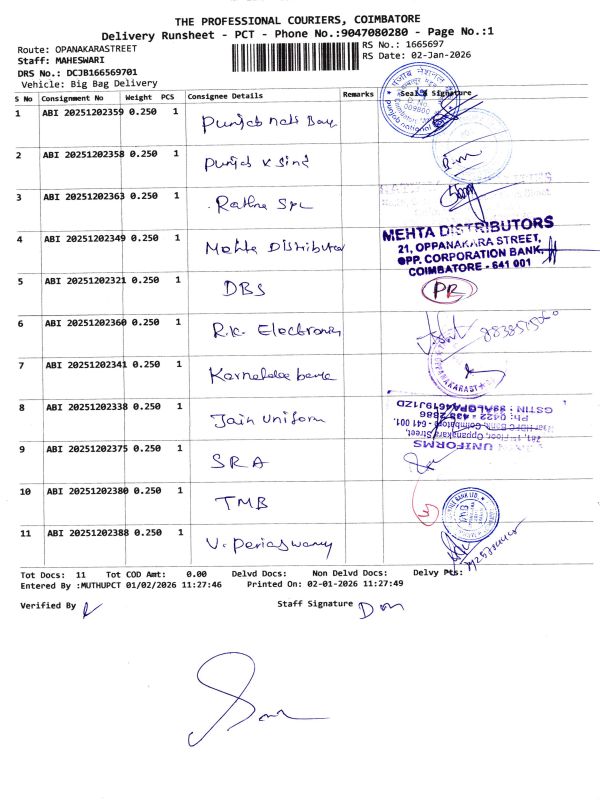 THE PROFESSIONAL COURIERS, COIMBATORE
Delivery Runsheet - PCT - Phone No.:9047080280 - Page No.:1
Route: OPANAKARASTREET
RS No.: 1665697
Staff: MAHESWARI
RS Date: 02-Jan-2026
DRS No.: DCJB166569701
Vehicle: Big Bag Delivery
S No Consignment No Weight PCS Consignee Details Remarks Seal & Signature
1 ABI 20251202359 0.250 1 Punjab natl Bank
2 ABI 20251202358 0.250 1 Punjab & Sind
3 ABI 20251202363 0.250 1 Rathna
4 ABI 20251202349 0.250 1 Mehta Distributor
MEHTA DISTRIBUTORS
21, OPPANAKARA STREET,
OPP. CORPORATION BANK,
COIMBATORE - 641 001
5 ABI 20251202321 0.250 1 DBS
PR
6 ABI 20251202360 0.250 1 R.K. Electronics
7 ABI 20251202341 0.250 1 Karnataka bank
8 ABI 20251202338 0.250 1 Jain Uniform
UNIFORMS
761, 1st Floor, Oppanakara Street,
Near HDFC Bank, Coimbatore - 641 001.
9 ABI 20251202375 0.250 1 SRA
10 ABI 20251202380 0.250 1 TMB
11 ABI 20251202388 0.250 1 V. Periaswamy
Tot Docs: 11 Tot COD Amt: 0.00 Delvd Docs: Non Delvd Docs: Delvy Pts:
Entered By :MUTHUPCT 01/02/2026 11:27:46 Printed On: 02-01-2026 11:27:49
Verified By
Staff Signature